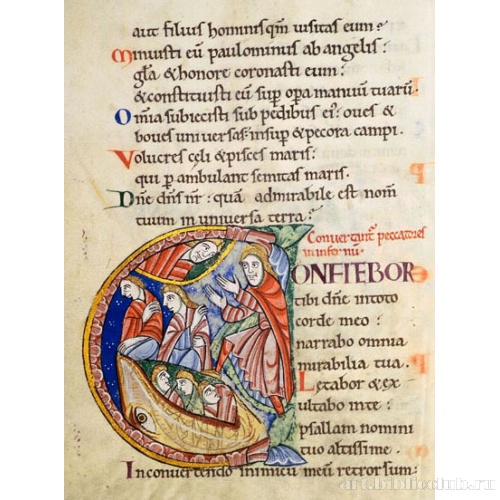 aut filius hominis qm̄ uisitas eum?
Minuisti eū paulominus ab angelis:
gl̄a & honore coronasti eum:
& constituisti eū sup̄ op̄a manuū tuarū.
Omīa subiecisti sub pedibus ei': oues &
boues uniuersas: insup̄ & pecora campi.
Volucres cęli & pisces maris:
qui p̄ambulant semitas maris.
Dn̄e dn̄s nr̄: quā admirabile est nom̄
tuum in uniuersa terra?
Conuertant' peccatores
in infernū.
CONFITEBOR
tibi dn̄e in toto
corde meo:
narrabo omnia
mirabilia tua.
Lętabor & ex
ultabo in te:
psallam nomini
tuo altissime.
In conuertendo inimicū meū retrorsum:
art.biblioclub.ru